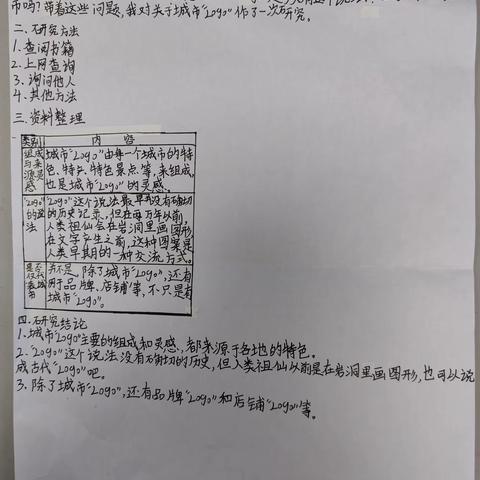 市吗？带着这些问题，我对关于城市“logo”作了一次研究。
二.研究方法
1.查阅书籍
2.上网查询
3.询问他人
4.其他方法
三.资料整理
类别 内容
组成与来源灵感
城市“logo”由每一个城市的特
色、特产、特色景点等，来组成，
也是城市“logo”的灵感。
“logo”的说法
“logo”这个说法最早并没有确切
的历史记录，但在每万年以前，
人类祖仙会在岩洞里画图形，
在文字产生之前，这种图案是
人类早其的一种交流方式。
并不是，除了城市“logo”，还有
用于品牌、店铺等，不只是有
城市“logo”。
四.研究结论
1.城市“logo”主要的组成和灵感，都来源于各地的特色。
2.“logo”这个说法没有确切的历史，但人类祖仙以前是在岩洞里画图形，也可以说
成古代“logo”吧。
3.除了城市“logo”，还有品牌“logo”和店铺“logo”等。